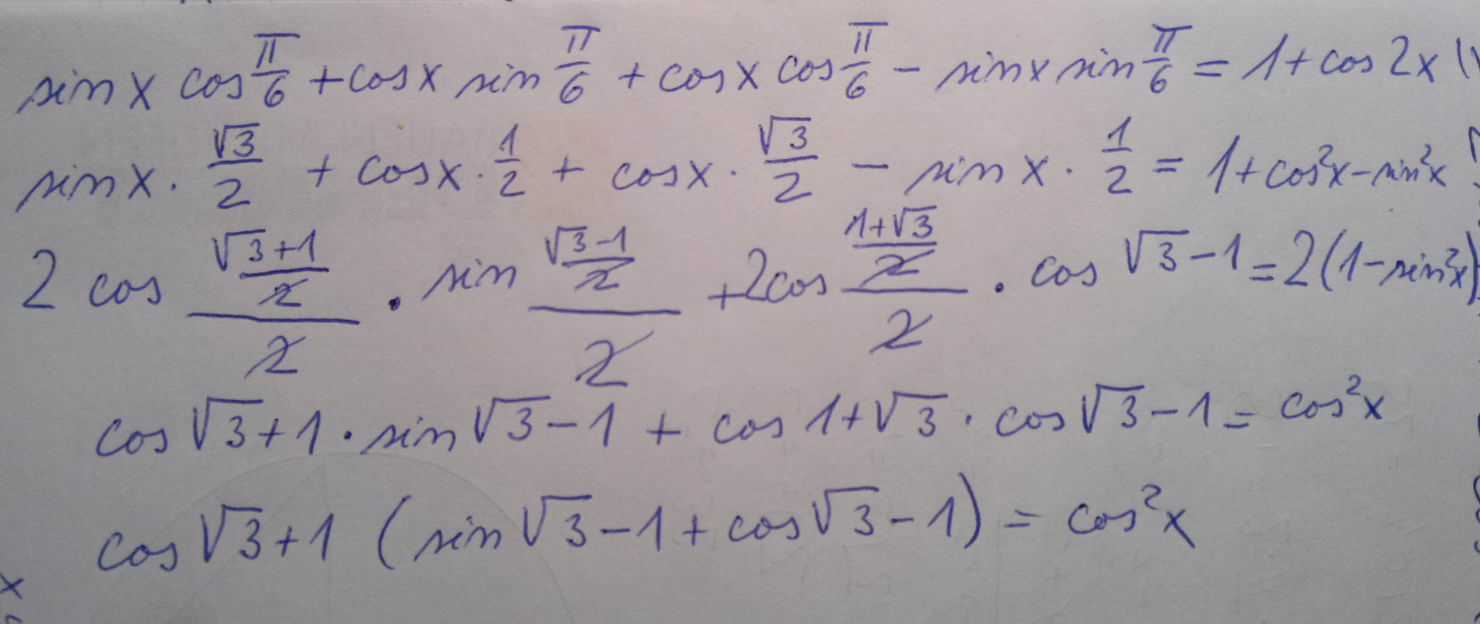 sin x cos π/6 + cos x sin π/6 + cos x cos π/6 − sin x sin π/6 = 1 + cos 2x
sin x · √3/2 + cos x · 1/2 + cos x · √3/2 − sin x · 1/2 = 1 + cos²x − sin²x
2 cos ((√3+1)/2)/2 · sin ((√3−1)/2)/2 + 2cos ((1+√3)/2)/2 · cos √3−1 = 2(1−sin²x)
cos √3+1 · sin √3−1 + cos 1+√3 · cos √3−1 = cos²x
cos √3+1 (sin √3−1 + cos √3−1) = cos²x
x